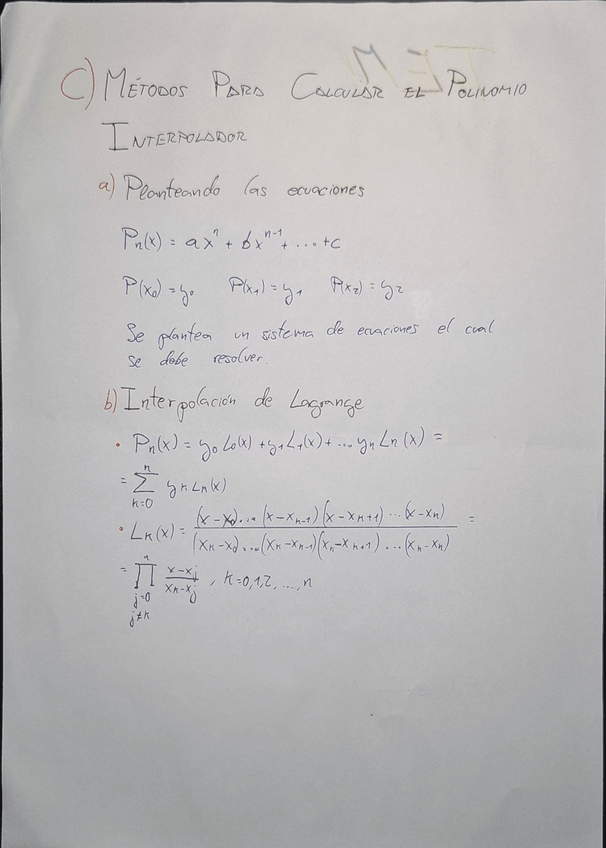 C) MÉTODOS PARA CALCULAR EL POLINOMIO
INTERPOLADOR
a) Planteando las ecuaciones
Pn(x) = ax^n + bx^(n-1) + ... + c
P(x₀) = y₀ P(x₁) = y₁ P(x₂) = y₂
Se plantea un sistema de ecuaciones el cual
se debe resolver.
b) Interpolación de Lagrange
• Pn(x) = y₀L₀(x) + y₁L₁(x) + ... yₙLₙ(x) =
= ∑_{k=0}^{n} yₖLₖ(x)
• Lₖ(x) = \frac{(x-x₀)...(x-x_{k-1})(x-x_{k+1})...(x-xₙ)}{(xₖ-x₀)...(xₖ-x_{k-1})(xₖ-x_{k+1})...(xₖ-xₙ)} =
= ∏_{j=0, j≠k}^{n} \frac{x-x_j}{xₖ-x_j}, k=0,1,2,...,n